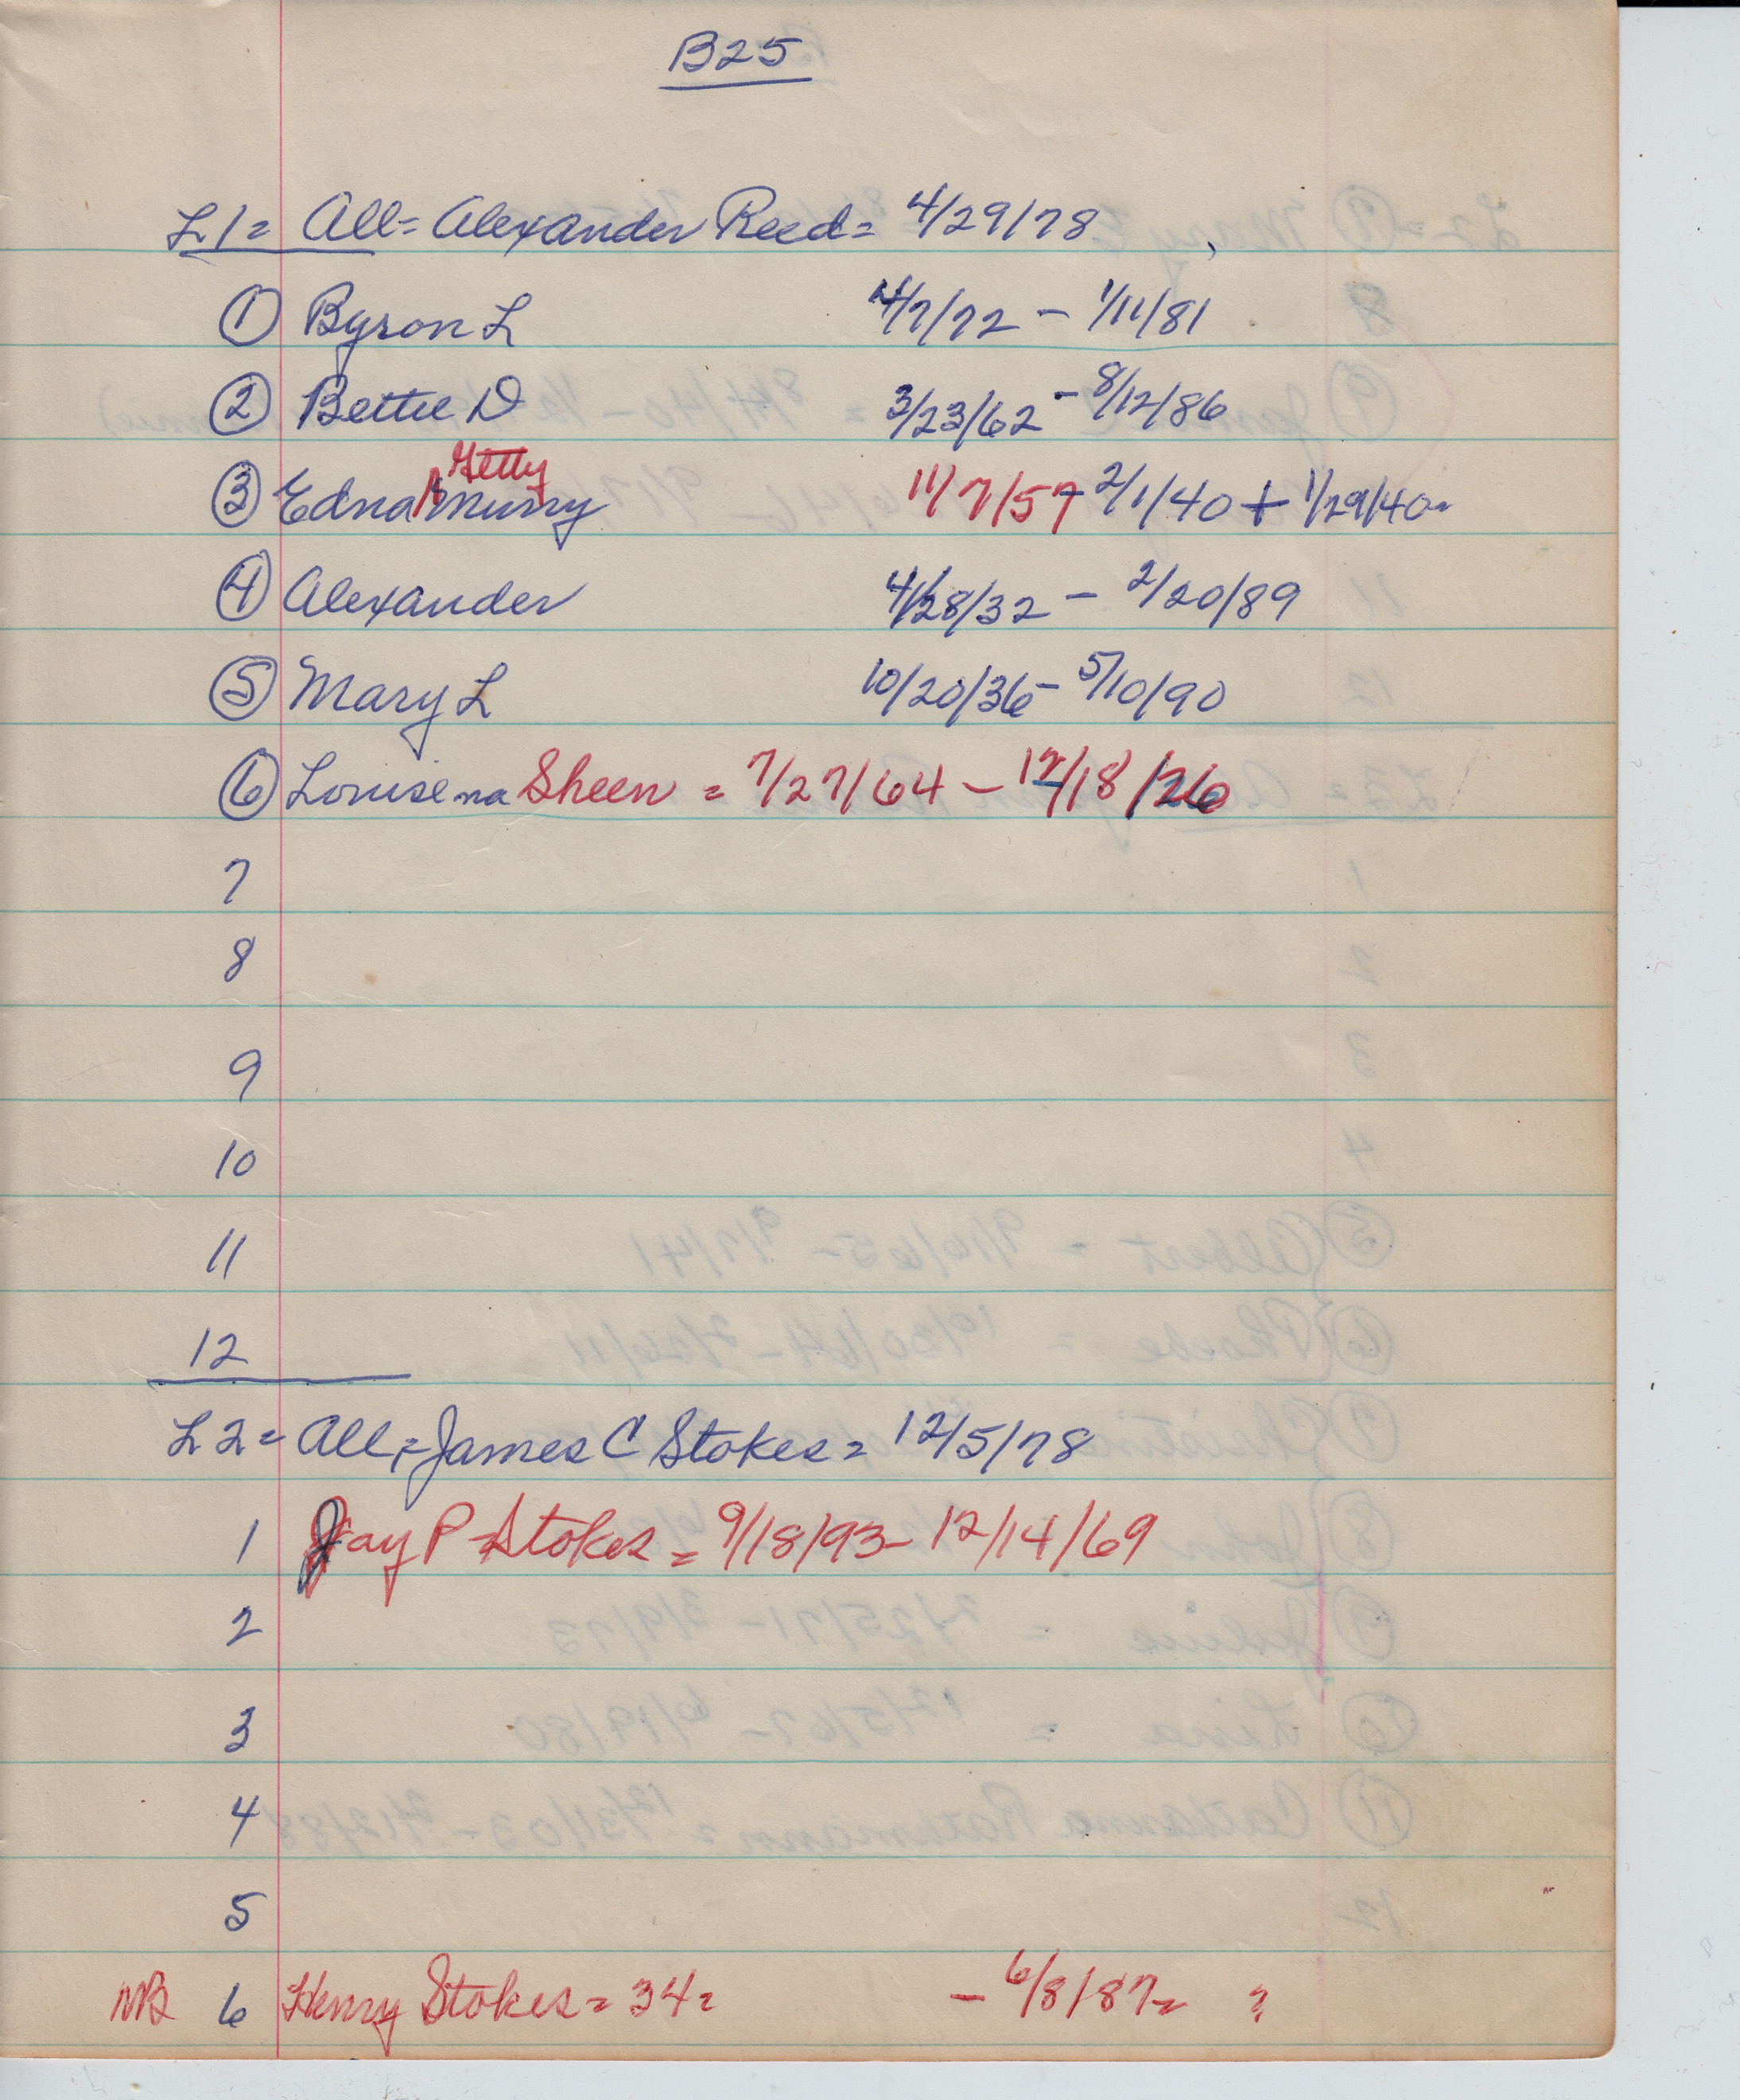 B25
L1 = All = Alexander Reed = 4/29/78
1 Byron L 4/7/72 - 1/11/81
2 Bettie D 3/23/62 - 8/12/86
Getty
3 Edna Murry 11/7/57 - 2/1/40 + 1/29/40 =
4 Alexander 4/28/32 - 2/20/89
5 Mary L 10/20/36 - 5/10/90
6 Louise na Sheen = 7/27/64 - 12/18/26
7
8
9
10
11
12
L2 = All = James C Stokes = 12/5/78
1 Jay P Stokes = 9/18/93 - 12/14/69
2
3
4
5
NB 6 Henry Stokes = 34 = - 6/8/87 = ?